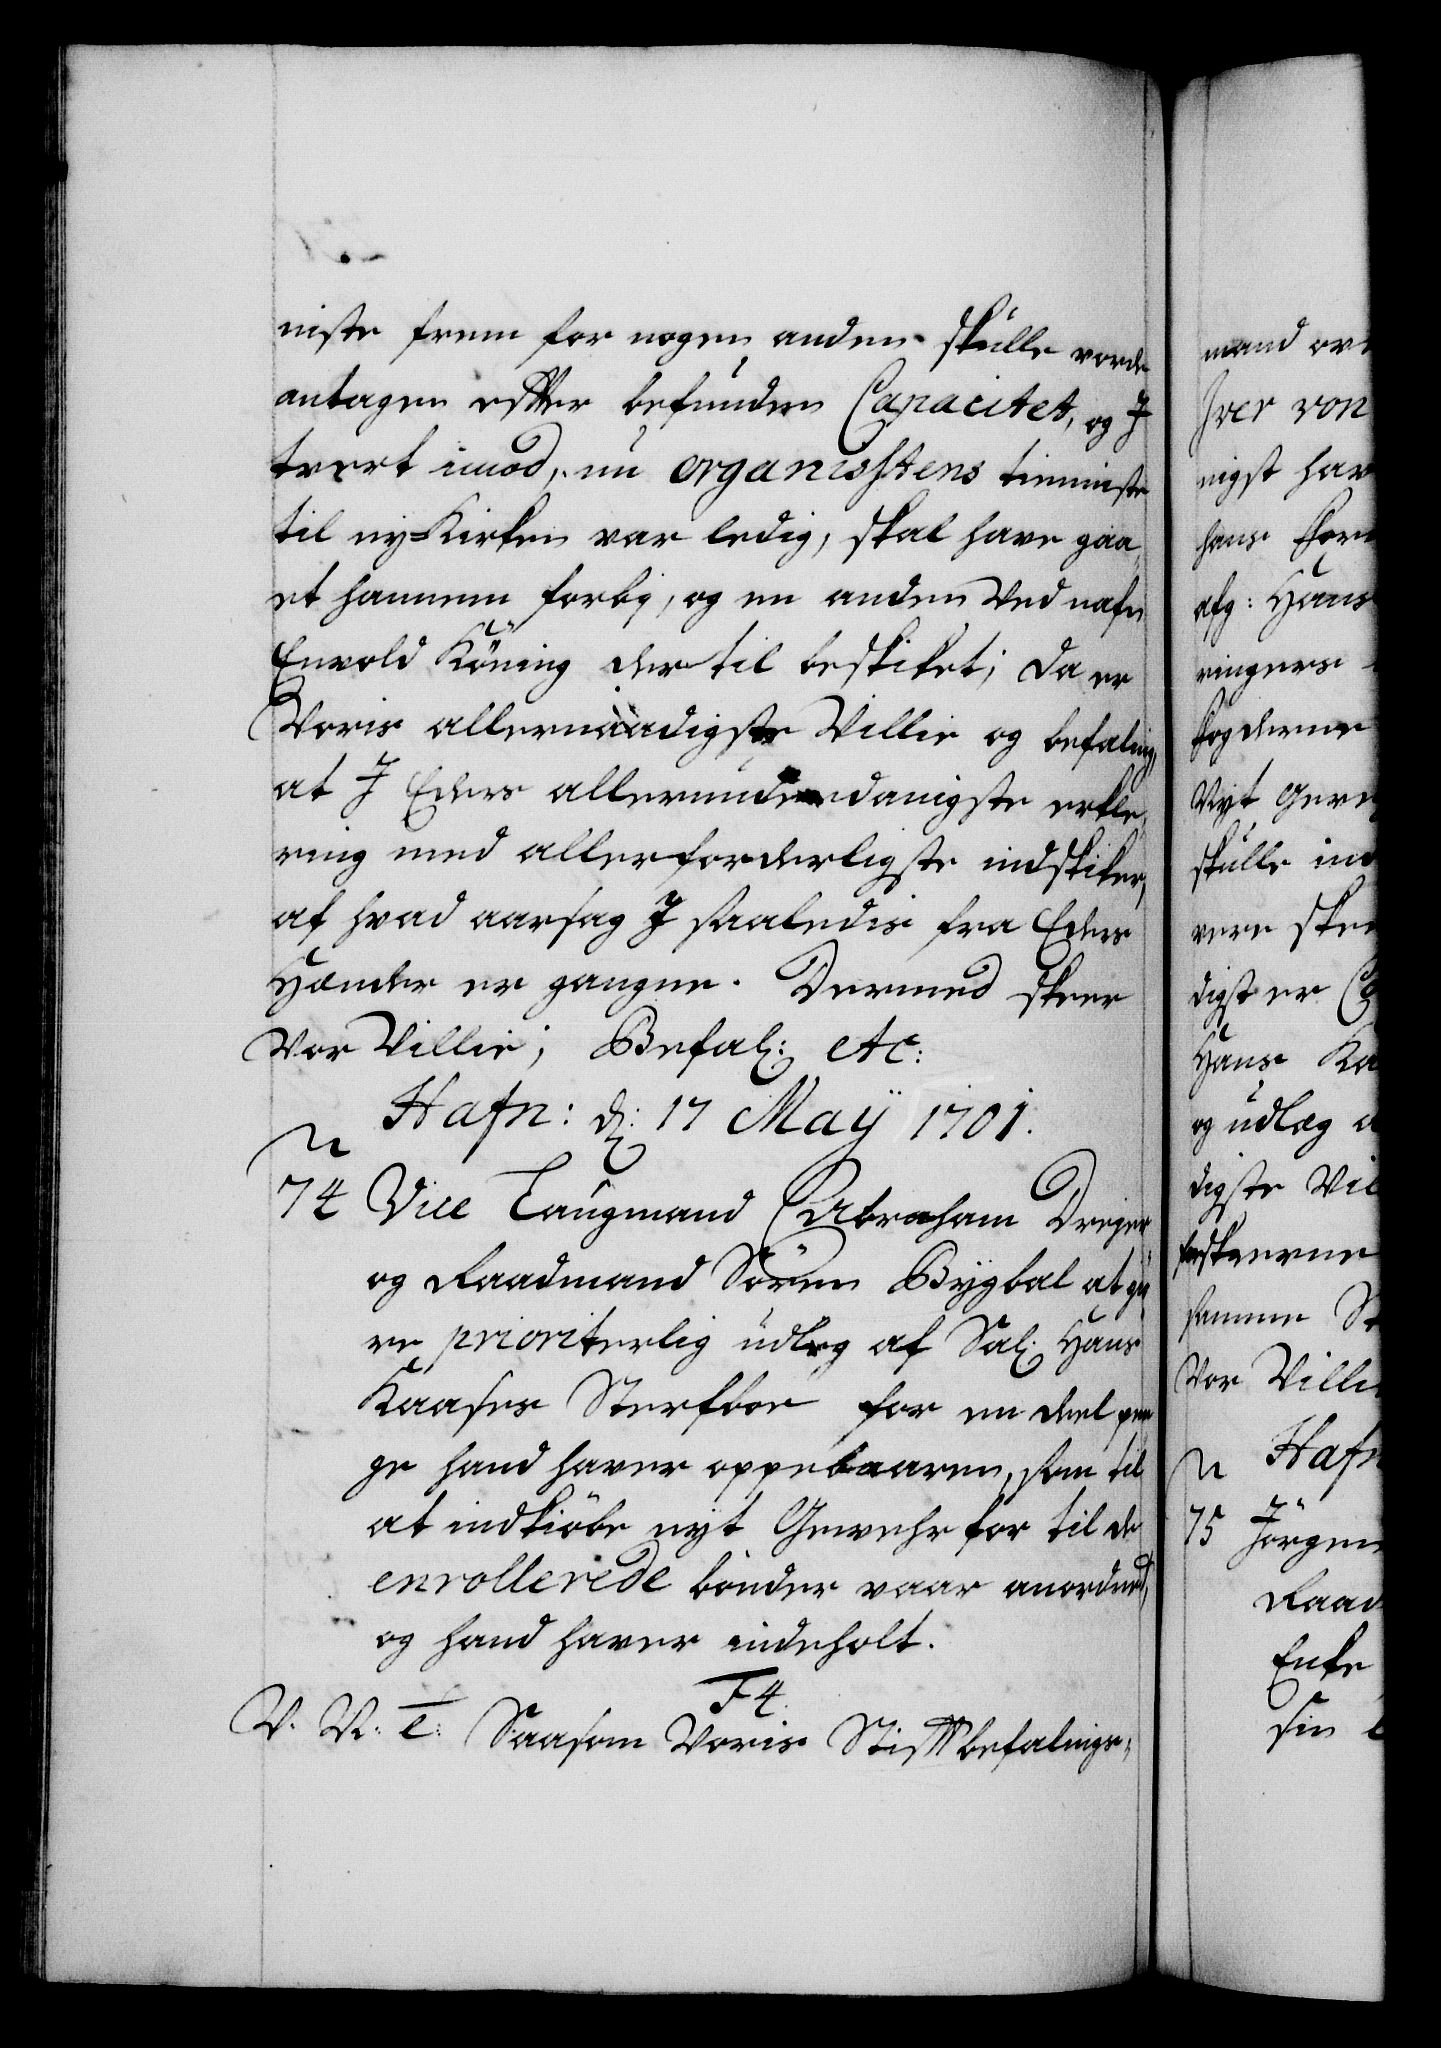 niste frem for nogen anden skulle vorde
antagen efter befunden Capacitet, og J
tvert imod, nu organistens tienniste
til ny-Kirken var ledig, skal have gaa-
et hannem forbj, og en anden ved nafn
Envold Köning der til beskiket; da er
Voris allernaadigste Villie og befaling,
at J Eders allerunderdanigste erkle-
ring med allerforderligste indskiker,
af hvad aarsag J saaledis fra Eders
Hænder er gangne. Dermed skeer
vor Villie; Befal: etc:
Hafn: d: 17 Maÿ 1701.
74 Vice Laugmand Abraham Dreyer
og Raadmand Sören Bygbal at giö-
re prioriterlig udleg af Sal: Hans
Kaases Sterfboe for en deel pen-
ge hand haver oppebaaren, som til
at indkiöbe nyt Gewehr for til de
enrollerede bönder vaar anordned,
og hand haver indeholt.
F4.
V. V: t: Saasom Voris Stiftbefalings-
mand
Iver von
nigst hav
hans
afg: Hans
ringers
fogderne
Nyt Geve
skulle ind
vere skee
digst er
Hans Ka
og udlæg
digste Vil
samme St
vor Villi
Hafn
75 Jörgen
Raad
Enke
sin